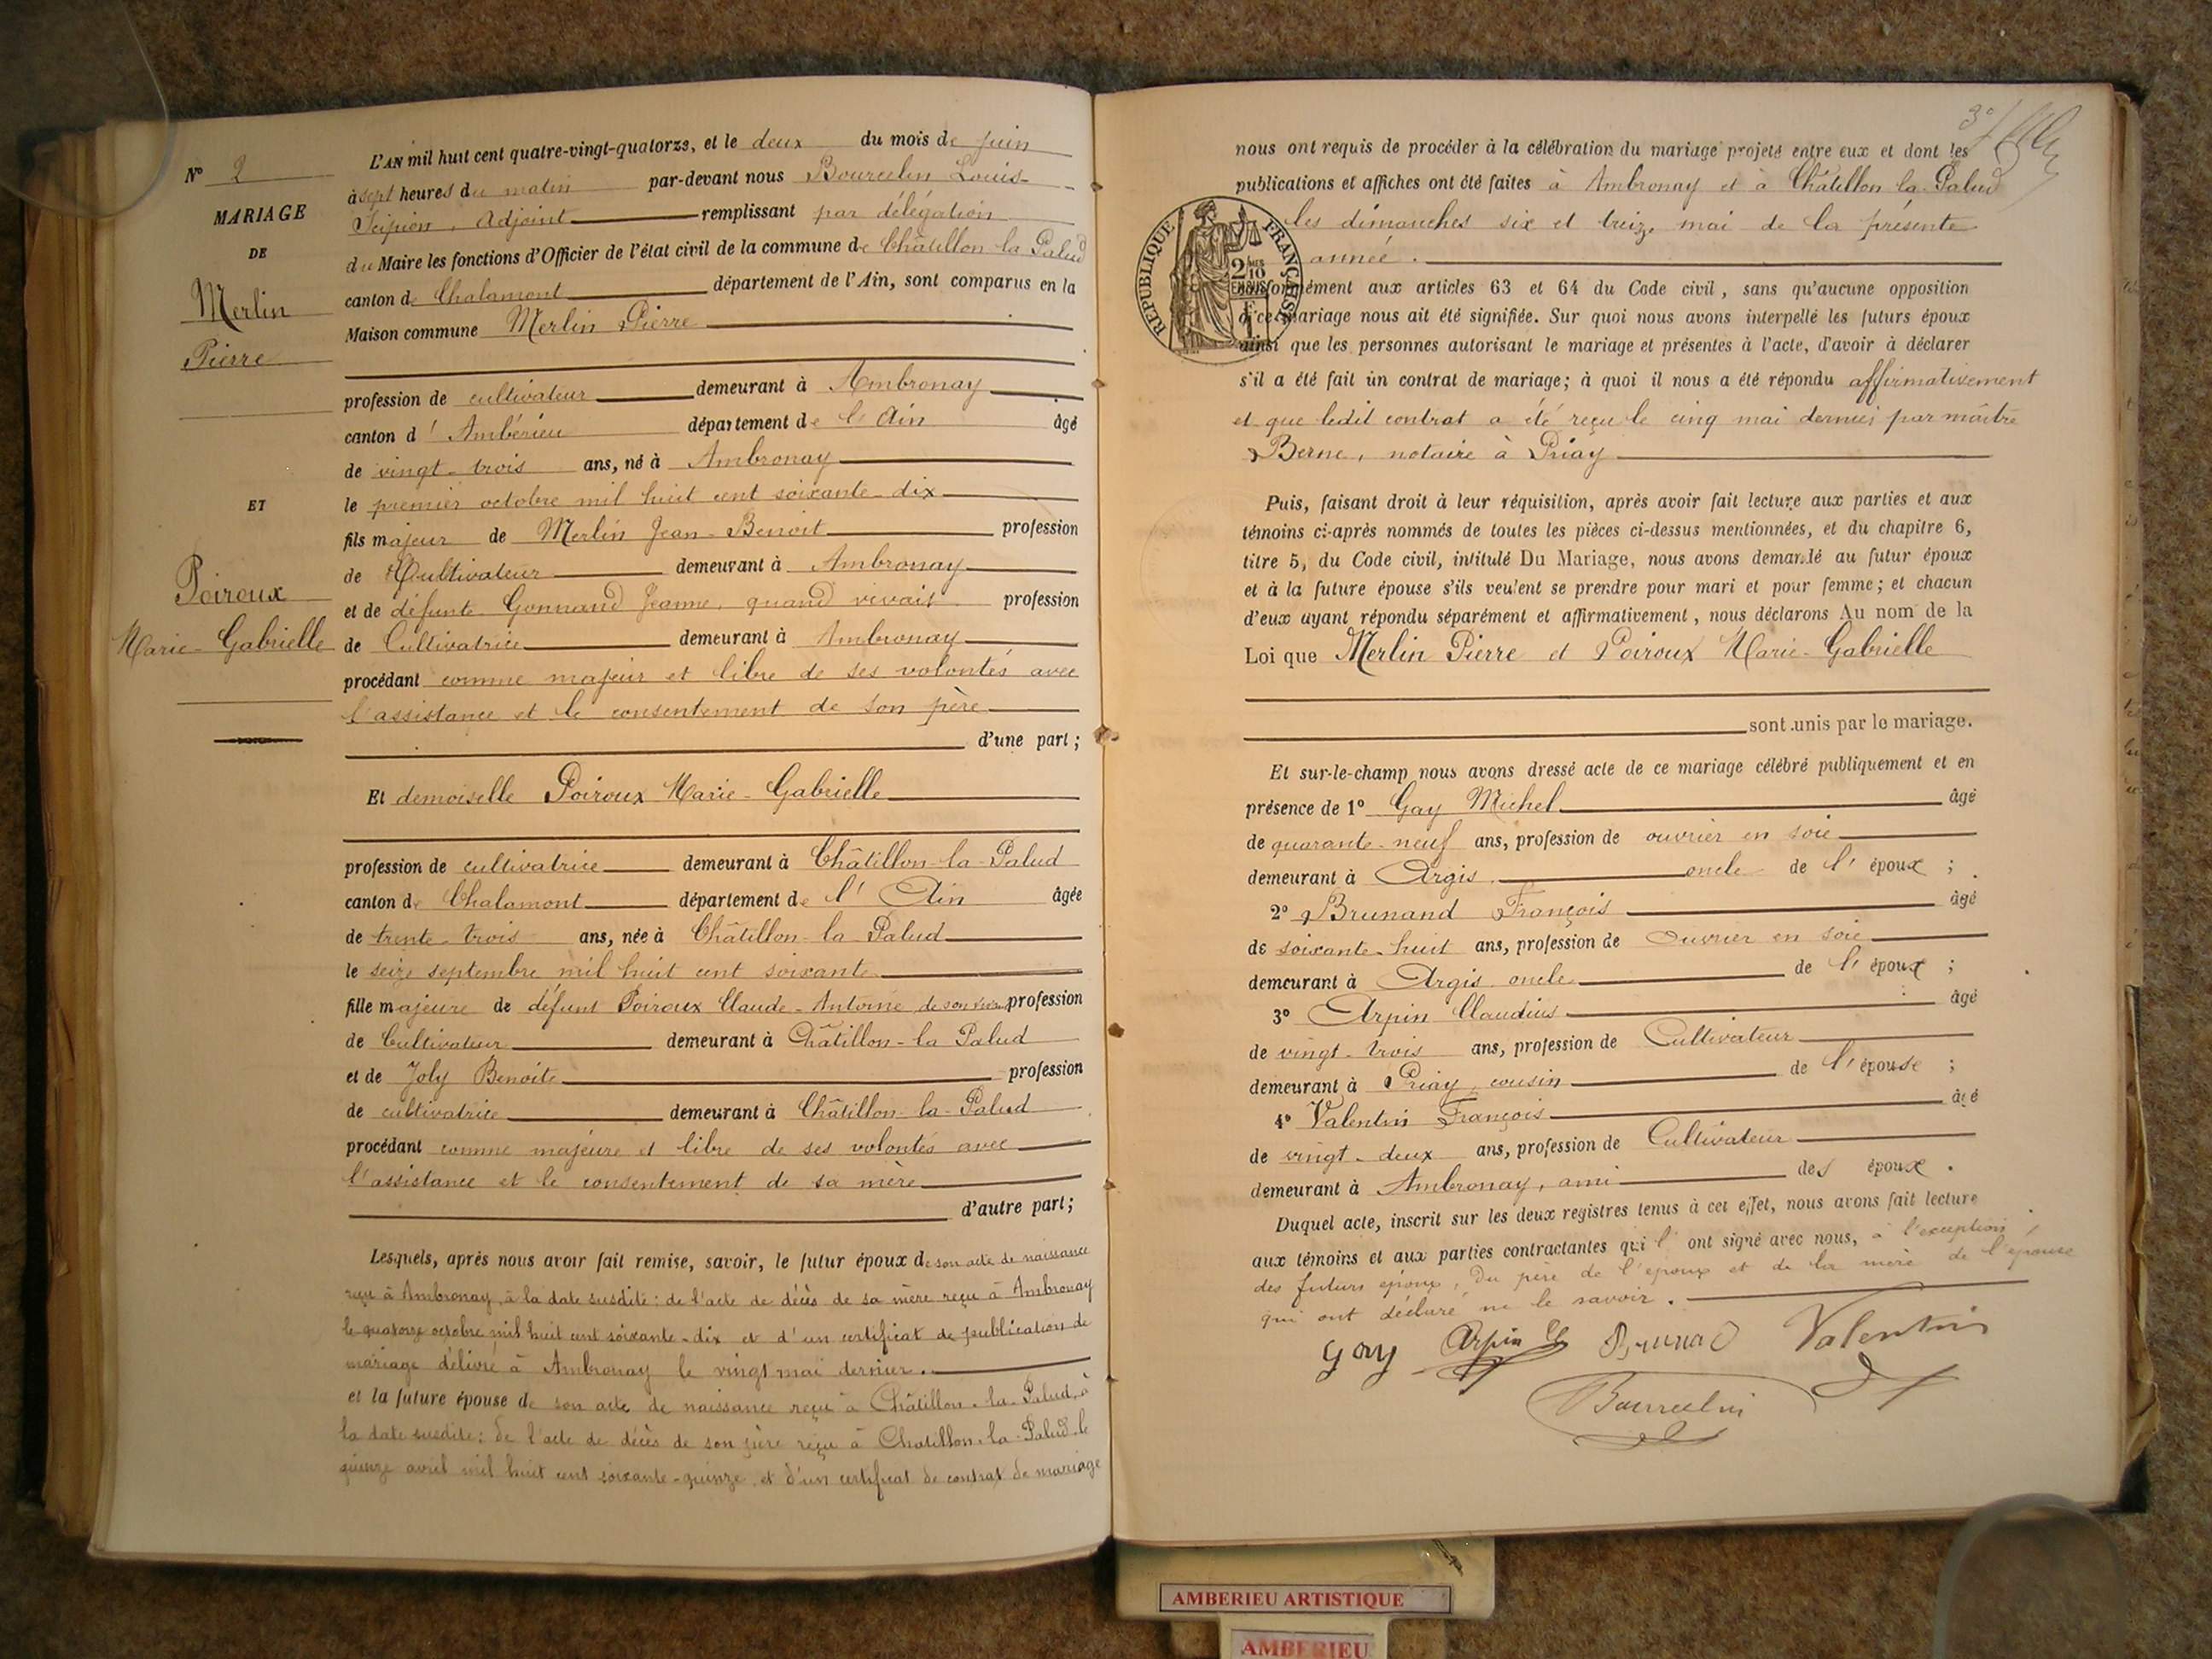 N° 2
MARIAGE
DE
Merlin
Pierre
ET
Poiroux
Marie-Gabrielle
L'AN mil huit cent quatre-vingt-quatorze, et le deux du mois de juin
à sept heures du matin par-devant nous Bourcelin Louis-
Scipion, Adjoint remplissant par délégation
du Maire les fonctions d'Officier de l'état civil de la commune de Châtillon la Palud
canton de Chalamont département de l'Ain, sont comparus en la
Maison commune Merlin Pierre
profession de cultivateur demeurant à Ambronay
canton d'Ambérieu département de l'Ain âgé
de vingt-trois ans, né à Ambronay
le premier octobre mil huit cent soixante-dix
fils majeur de Merlin Jean-Benoit profession
de Cultivateur demeurant à Ambronay
et de défunte Gonnand Jeanne, quand vivait profession
de Cultivatrice demeurant à Ambronay
procédant comme majeur et libre de ses volontés avec
l'assistance et le consentement de son père
d'une part;
Et demoiselle Poiroux Marie-Gabrielle
profession de cultivatrice demeurant à Châtillon-la-Palud
canton de Chalamont département de l'Ain âgée
de trente-trois ans, née à Châtillon-la-Palud
le seize septembre mil huit cent soixante
fille majeure de défunt Poiroux Claude-Antoine, de son vivant profession
de Cultivateur demeurant à Châtillon-la Palud
et de Joly Benoite profession
de cultivatrice demeurant à Châtillon-la-Palud
procédant comme majeure et libre de ses volontés avec
l'assistance et le consentement de sa mère
d'autre part;
Lesquels, après nous avoir fait remise, savoir, le futur époux de son acte de naissance
reçu à Ambronay, à la date susdite; de l'acte de décès de sa mère reçu à Ambronay
le quatorze octobre mil huit cent soixante-dix et d'un certificat de publication de
mariage délivré à Ambronay le vingt mai dernier.
et la future épouse de son acte de naissance reçu à Châtillon-la-Palud, à
la date susdite; de l'acte de décès de son père reçu à Chatillon-la-Palud le
quinze avril mil huit cent soixante-quinze, et d'un certificat de contrat de mariage
nous ont requis de procéder à la célébration du mariage projeté entre eux et dont les
publications et affiches ont été faites à Ambronay et à Châtillon-la-Palud
les dimanches six et treize mai de la présente
année.
RÉPUBLIQUE FRANÇAISE
2/10 EN SUS
conformément aux articles 63 et 64 du Code civil, sans qu'aucune opposition
à ce mariage nous ait été signifiée. Sur quoi nous avons interpellé les futurs époux
ainsi que les personnes autorisant le mariage et présentes à l'acte, d'avoir à déclarer
s'il a été fait un contrat de mariage; à quoi il nous a été répondu affirmativement
et que ledit contrat a été reçu le cinq mai dernier par maître
Berne, notaire à Priay
Puis, faisant droit à leur réquisition, après avoir fait lecture aux parties et aux
témoins ci-après nommés de toutes les pièces ci-dessus mentionnées, et du chapitre 6,
titre 5, du Code civil, intitulé Du Mariage, nous avons demandé au futur époux
et à la future épouse s'ils veulent se prendre pour mari et pour femme; et chacun
d'eux ayant répondu séparément et affirmativement, nous déclarons Au nom de la
Loi que Merlin Pierre et Poiroux Marie-Gabrielle
sont unis par le mariage.
Et sur-le-champ nous avons dressé acte de ce mariage célébré publiquement et en
présence de 1° Gay Michel âgé
de quarante-neuf ans, profession de ouvrier en soie
demeurant à Argis oncle de l'époux;
2° Brunand François âgé
de soixante-huit ans, profession de Ouvrier en soie
demeurant à Argis oncle de l'époux;
3° Arpin Claudius âgé
de vingt-trois ans, profession de Cultivateur
demeurant à Priay, cousin de l'épouse;
4° Valentin François âgé
de vingt-deux ans, profession de Cultivateur
demeurant à Ambronay, ami des époux.
Duquel acte, inscrit sur les deux registres tenus à cet effet, nous avons fait lecture
aux témoins et aux parties contractantes qui l'ont signé avec nous, à l'exception
des futurs époux, du père de l'époux et de la mère de l'épouse
qui ont déclaré ne le savoir.
Gay Arpin Cl Brunad Valentin
Bourcelin
AMBERIEU ARTISTIQUE
AMBERIEU